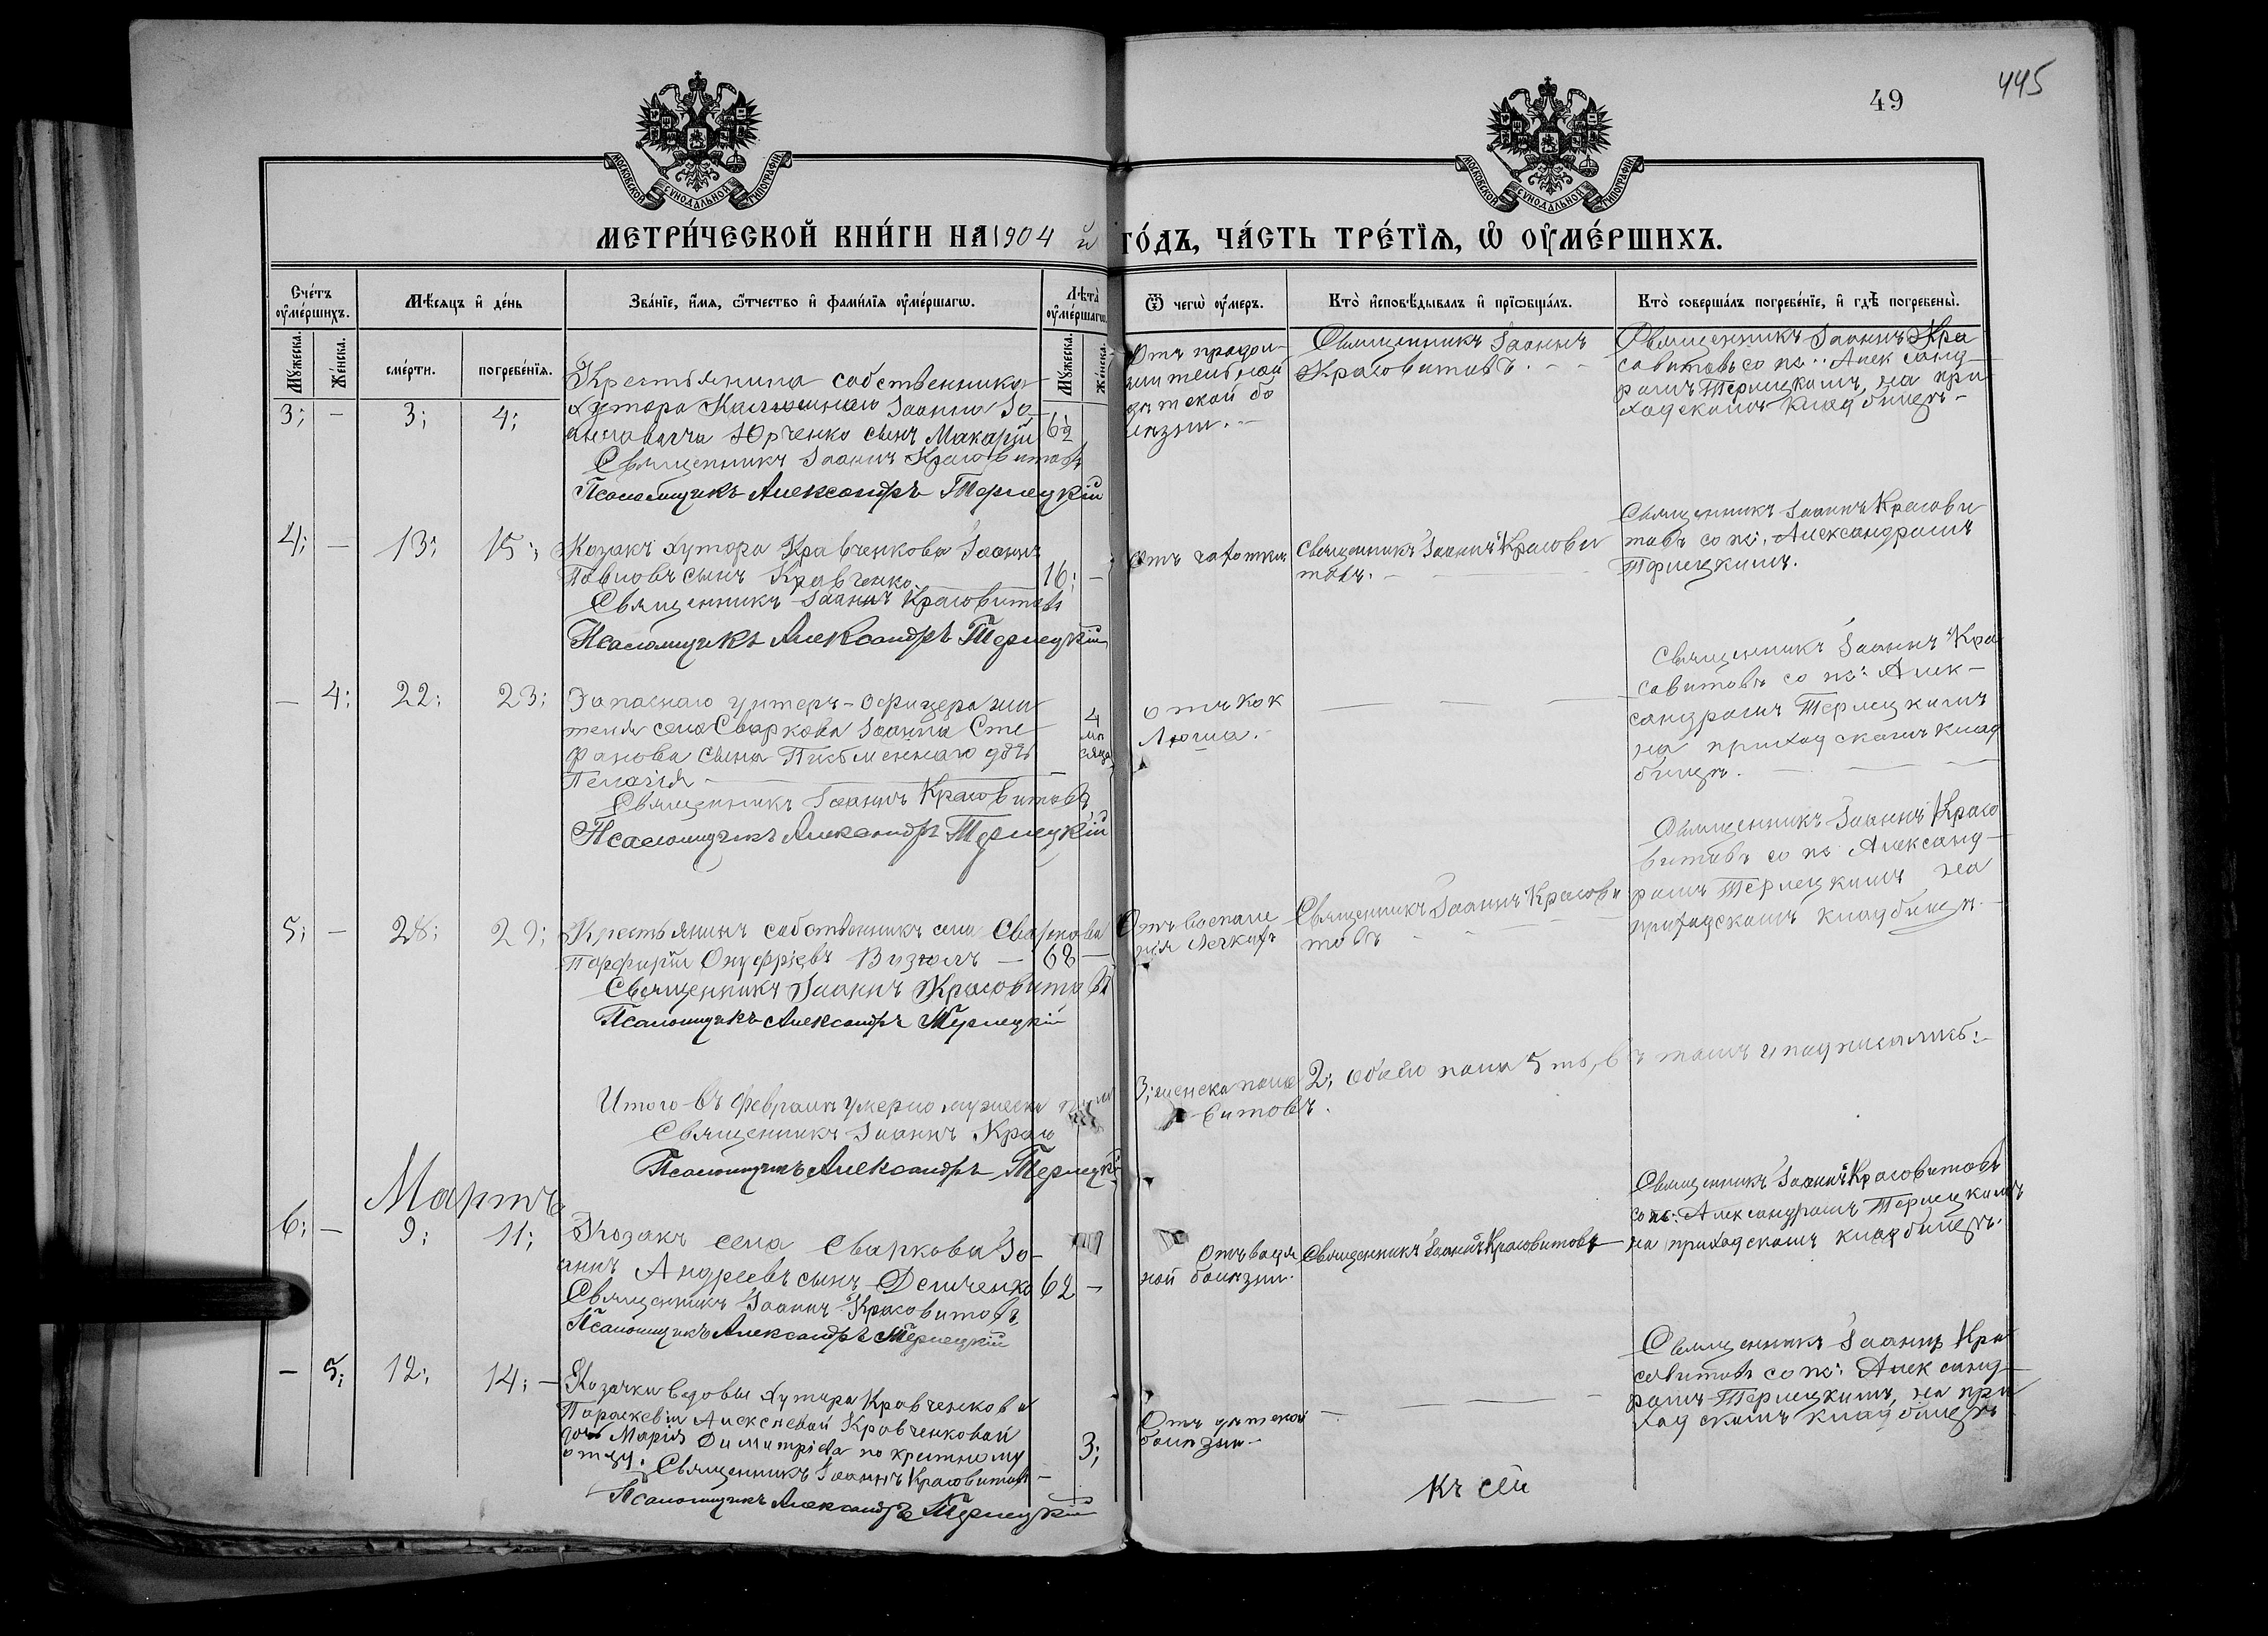 445
49
МОСКОВСКОЙ СѴНОДАЛЬНОЙ ТИПОГРАФІИ
МОСКОВСКОЙ СѴНОДАЛЬНОЙ ТИПОГРАФІИ
МЕТРИ́ЧЕСКОЙ КНИ́ГИ НА 1904 й ГО́ДЪ, ЧА́СТЬ ТРЕ́ТІѦ, Ѡ҆ ОУ҆МЕ́РШИХЪ.
Сче́тъ оу҆ме́ршихъ.
Мꙋжеска.
Же́нска.
Мѣсяцъ и҆ де́нь
сме́рти.
погребе́нїѧ.
Зва́нїе, и҆́мѧ, ѻ҆́тчество и҆ фами́лїѧ оу҆ме́ршагѡ.
Лѣта̀ оу҆ме́ршагѡ.
Мꙋжеска.
Же́нска.
Ѿ чегѡ̀ оу҆́меръ.
Кто̀ и҆сповѣ́дывалъ и҆ прїѡбща́лъ.
Кто̀ соверша́лъ погребе́нїе, и҆ гдѣ̀ погребены̀.
3; — 3; 4;
Крестьянина собственника
хутора Іоанна Іо-
анновича Юрченко сынъ Макарій
6½
Священникъ Іоаннъ Красовитовъ
Псаломщикъ Александръ Терлецкій
Отъ продол-
жительной
дѣтской бо
лѣзни. —
Священникъ Іоаннъ
Красовитовъ. — —
Священникъ Іоаннъ Кра
совитовъ со пс: Александ-
ромъ Терлецкимъ, на при
ходскомъ кладбищѣ —
4; — 13; 15;
Козакъ хутора Кравченкова Іоаннъ
Павловъ сынъ Кравченко.
16; —
Священникъ Іоаннъ Красовитовъ
Псаломщикъ Александръ Терлецкій
Отъ чахотки
Священникъ Іоаннъ Красови
товъ. —
Священникъ Іоаннъ Красови
товъ со пс: Александромъ
Терлецкимъ.
— 4; 22; 23;
Запаснаго унтеръ-офицера жи
теля села Сваркова Іоанна Сте
фанова сына Письменнаго дочь
Пелагія —
4
мѣ
сяца
Священникъ Іоаннъ Красовитовъ
Псаломщикъ Александръ Терлецкій
отъ кок
люша. —
— — —
Священникъ Іоаннъ Кра
совитовъ со пс: Алек-
сандромъ Терлецкимъ
на приходскомъ клад
бищѣ. — — —
5; — 28; 29;
Крестьянинъ собственникъ села Сваркова
Порфирій Онуфріевъ Визюлъ —
68 —
Священникъ Іоаннъ Красовитовъ
Псаломщикъ Александръ Терлецкій
Отъ воспале
нія легкихъ
Священникъ Іоаннъ Красови
товъ
Священникъ Іоаннъ Красо
витовъ со пс: Александ-
ромъ Терлецкимъ на
приходскомъ кладбищѣ. —
Итого въ февралѣ умерло мужеска пола 3; женска пола 2; обоего пола 5 ть, въ томъ и подписались: —
Священникъ Іоаннъ Красовитовъ.
Псаломщикъ Александръ Терлецкій
Мартъ
6; — 9; 11;
Козакъ села Сваркова Іо-
аннъ Андреевъ сынъ Демченко
62 —
Священникъ Іоаннъ Красовитовъ
Псаломщикъ Александръ Терлецкій
Отъ водя
ной болѣзни.
Священникъ Іоаннъ Красовитовъ —
Священникъ Іоаннъ Красовитовъ
со пс: Александромъ Терлецкимъ
на приходскомъ кладбищѣ.
— 5; 12; 14; —
Козачки вдовы хутора Кравченкова
Параскевіи Алексѣевой Кравченковой
дочь Марія Димитріева по крестному
отцу.
3;
Священникъ Іоаннъ Красовитовъ —
Псаломщикъ Александръ Терлецкій
Отъ дѣтской
болѣзни —
— — —
Священникъ Іоаннъ Кра
совитовъ со пс: Александ-
ромъ Терлецкимъ, на при
ходскомъ кладбищѣ
Къ сей